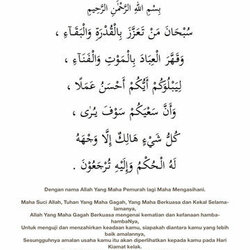 بِسْمِ اللَّهِ الرَّحْمَٰنِ الرَّحِيْمِ
سُبْحَانَ مَنْ تَعَزَّزَ بِالْقُدْرَةِ وَالْبَقَآءِ ،
وَقَهَّرَ الْعِبَادَ بِالْمَوْتِ وَالْفَنَآءِ ،
لِيَبْلُوَكُمْ أَيُّكُمْ أَحْسَنُ عَمَلًا ،
وَأَنَّ سَعْيَكُمْ سَوْفَ يُرَى ،
كُلُّ شَيْءٍ هَالِكٌ إِلَّا وَجْهَهُ
لَهُ الْحُكْمُ وَإِلَيْهِ تُرْجَعُوْنَ .
Dengan nama Allah Yang Maha Pemurah lagi Maha Mengasihani.
Maha Suci Allah, Tuhan Yang Maha Gagah, Yang Maha Berkuasa dan Kekal Selama-
lamanya,
Allah Yang Maha Gagah Berkuasa mengenai kematian dan kefanaan hamba-
hambaNya,
Untuk menguji dan menzahirkan keadaan kamu, siapakah diantara kamu yang lebih
baik amalannya,
Sesungguhnya amalan usaha kamu itu akan diperlihatkan kepada kamu pada Hari
Kiamat kelak.